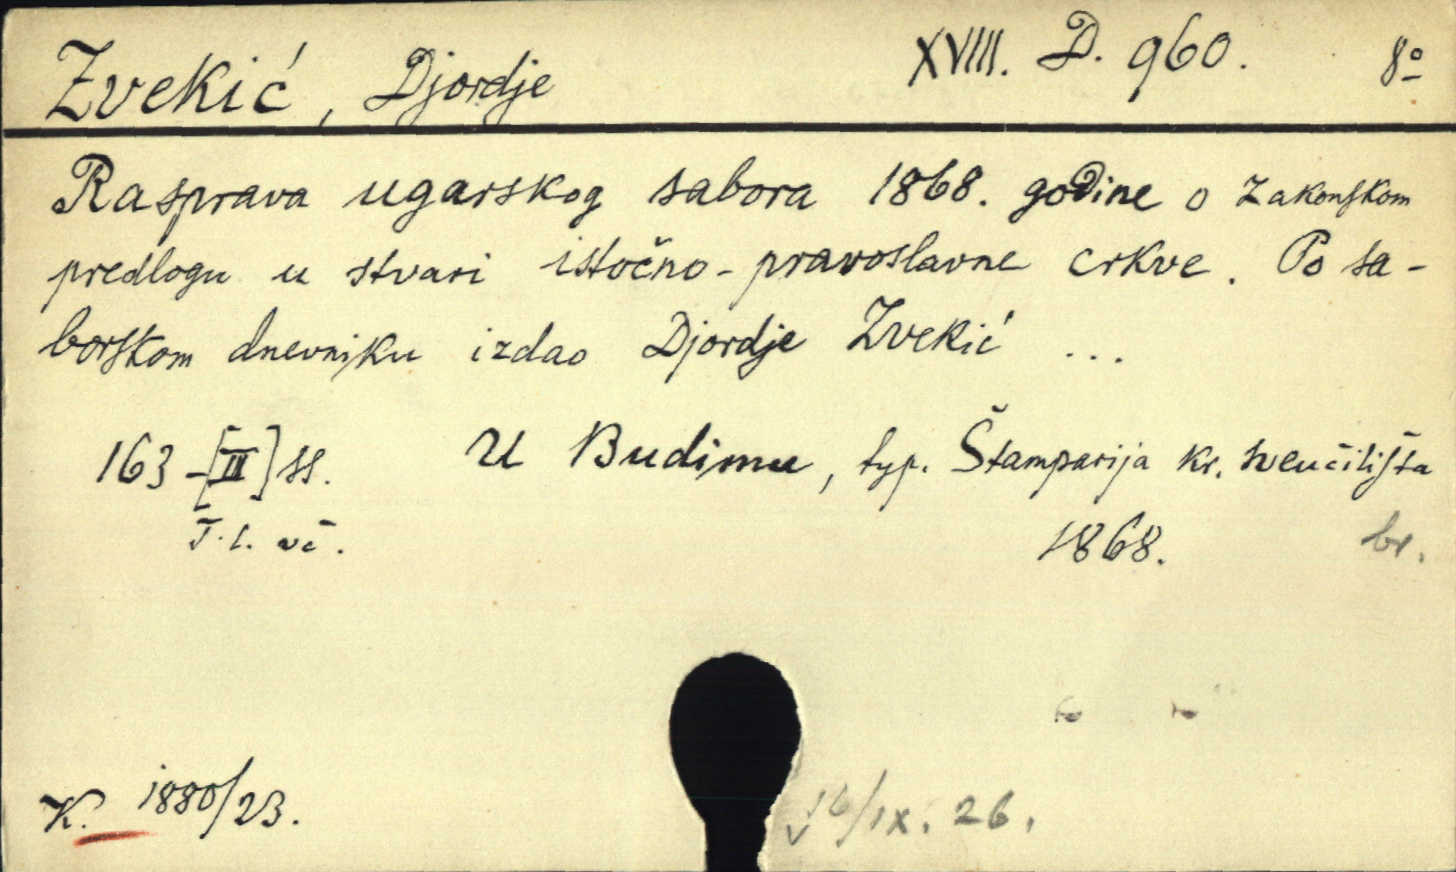 Zvekić, Djordje XVIII. D. 960. 8º
Rasprava ugarskog sabora 1868. godine o zakonskom
predlogu u stvari istočno-pravoslavne crkve. Po sa-
borskom dnevniku izdao Djordje Zvekić ...
163-[III] ss. U Budimu, typ. Štamparija kr. sveučilišta
1868. br.
K. 1880/23.
16/IX. 26.